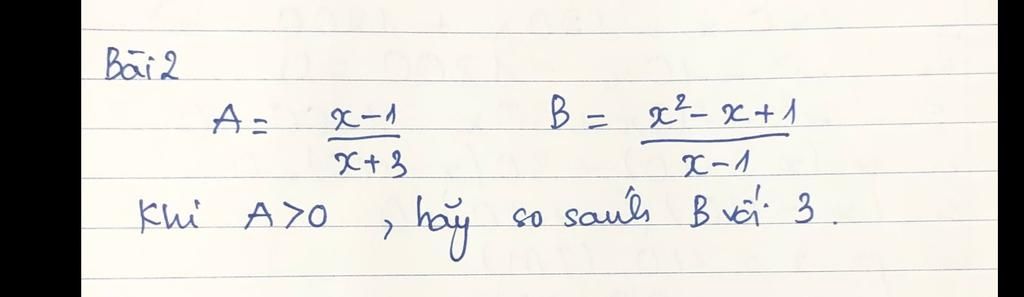 Bài 2
A = x-1/x+3 B = x²-x+1/x-1
Khi A>0, hãy so sánh B với 3.